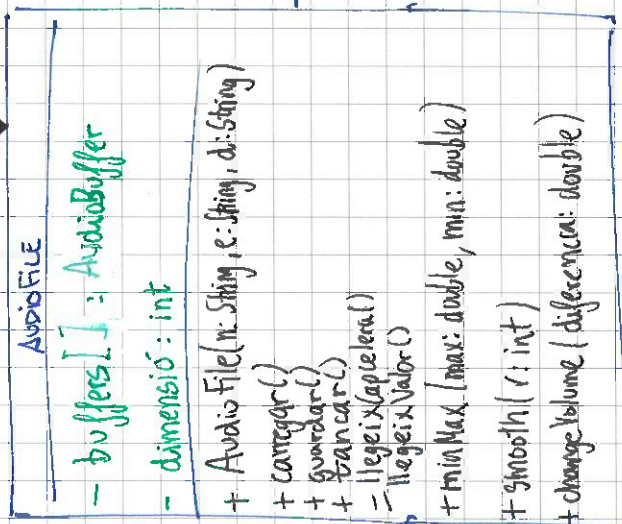 AUDIOFILE
- buffers[] : AudioBuffer
- dimensió: int
+ AudioFile(n: String, e: String, d: String)
+ carregar()
+ guardar()
+ tancar()
- llegeixCapcelera()
- llegeixValor()
+ minMax (max: double, min: double)
+ smooth(v: int)
+ changeVolume (diferencia: double)